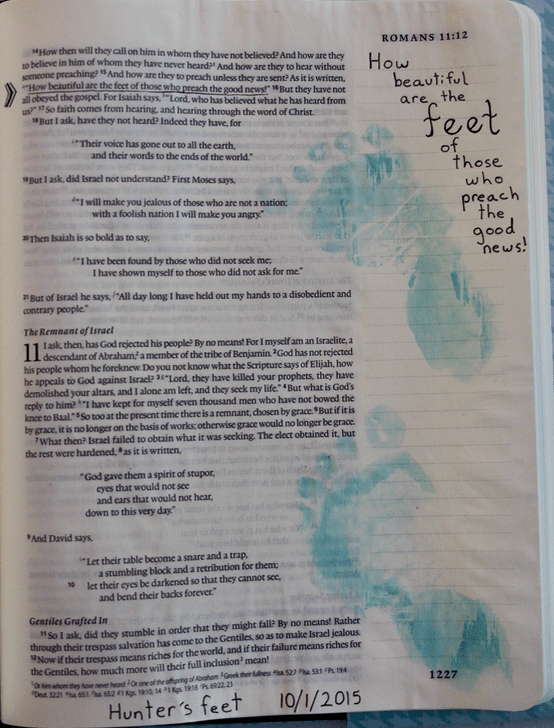 ROMANS 11:12
¹⁴How then will they call on him in whom they have not believed? And how are they
to believe in him of whom they have never heard?¹ And how are they to hear without
someone preaching? ¹⁵And how are they to preach unless they are sent? As it is written,
"How beautiful are the feet of those who preach the good news!" ¹⁶But they have not
all obeyed the gospel. For Isaiah says, "Lord, who has believed what he has heard from
us?" ¹⁷So faith comes from hearing, and hearing through the word of Christ.
¹⁸But I ask, have they not heard? Indeed they have, for
"Their voice has gone out to all the earth,
and their words to the ends of the world."
¹⁹But I ask, did Israel not understand? First Moses says,
"I will make you jealous of those who are not a nation;
with a foolish nation I will make you angry."
²⁰Then Isaiah is so bold as to say,
"I have been found by those who did not seek me;
I have shown myself to those who did not ask for me."
²¹But of Israel he says, "All day long I have held out my hands to a disobedient and
contrary people."
The Remnant of Israel
11 I ask, then, has God rejected his people? By no means! For I myself am an Israelite, a
descendant of Abraham,² a member of the tribe of Benjamin. ²God has not rejected
his people whom he foreknew. Do you not know what the Scripture says of Elijah, how
he appeals to God against Israel? ³"Lord, they have killed your prophets, they have
demolished your altars, and I alone am left, and they seek my life." ⁴But what is God's
reply to him? "I have kept for myself seven thousand men who have not bowed the
knee to Baal." ⁵So too at the present time there is a remnant, chosen by grace. ⁶But if it is
by grace, it is no longer on the basis of works; otherwise grace would no longer be grace.
⁷What then? Israel failed to obtain what it was seeking. The elect obtained it, but
the rest were hardened, ⁸as it is written,
"God gave them a spirit of stupor,
eyes that would not see
and ears that would not hear,
down to this very day."
⁹And David says,
"Let their table become a snare and a trap,
a stumbling block and a retribution for them;
10 let their eyes be darkened so that they cannot see,
and bend their backs forever."
Gentiles Grafted In
¹¹So I ask, did they stumble in order that they might fall? By no means! Rather
through their trespass salvation has come to the Gentiles, so as to make Israel jealous.
¹²Now if their trespass means riches for the world, and if their failure means riches for
the Gentiles, how much more will their full inclusion³ mean!
¹Or him whom they have never heard ²Or one of the offspring of Abraham ³Greek their fullness
How
beautiful
are the
feet
of
those
who
preach
the
good
news!
1227
Hunter's feet 10/1/2015